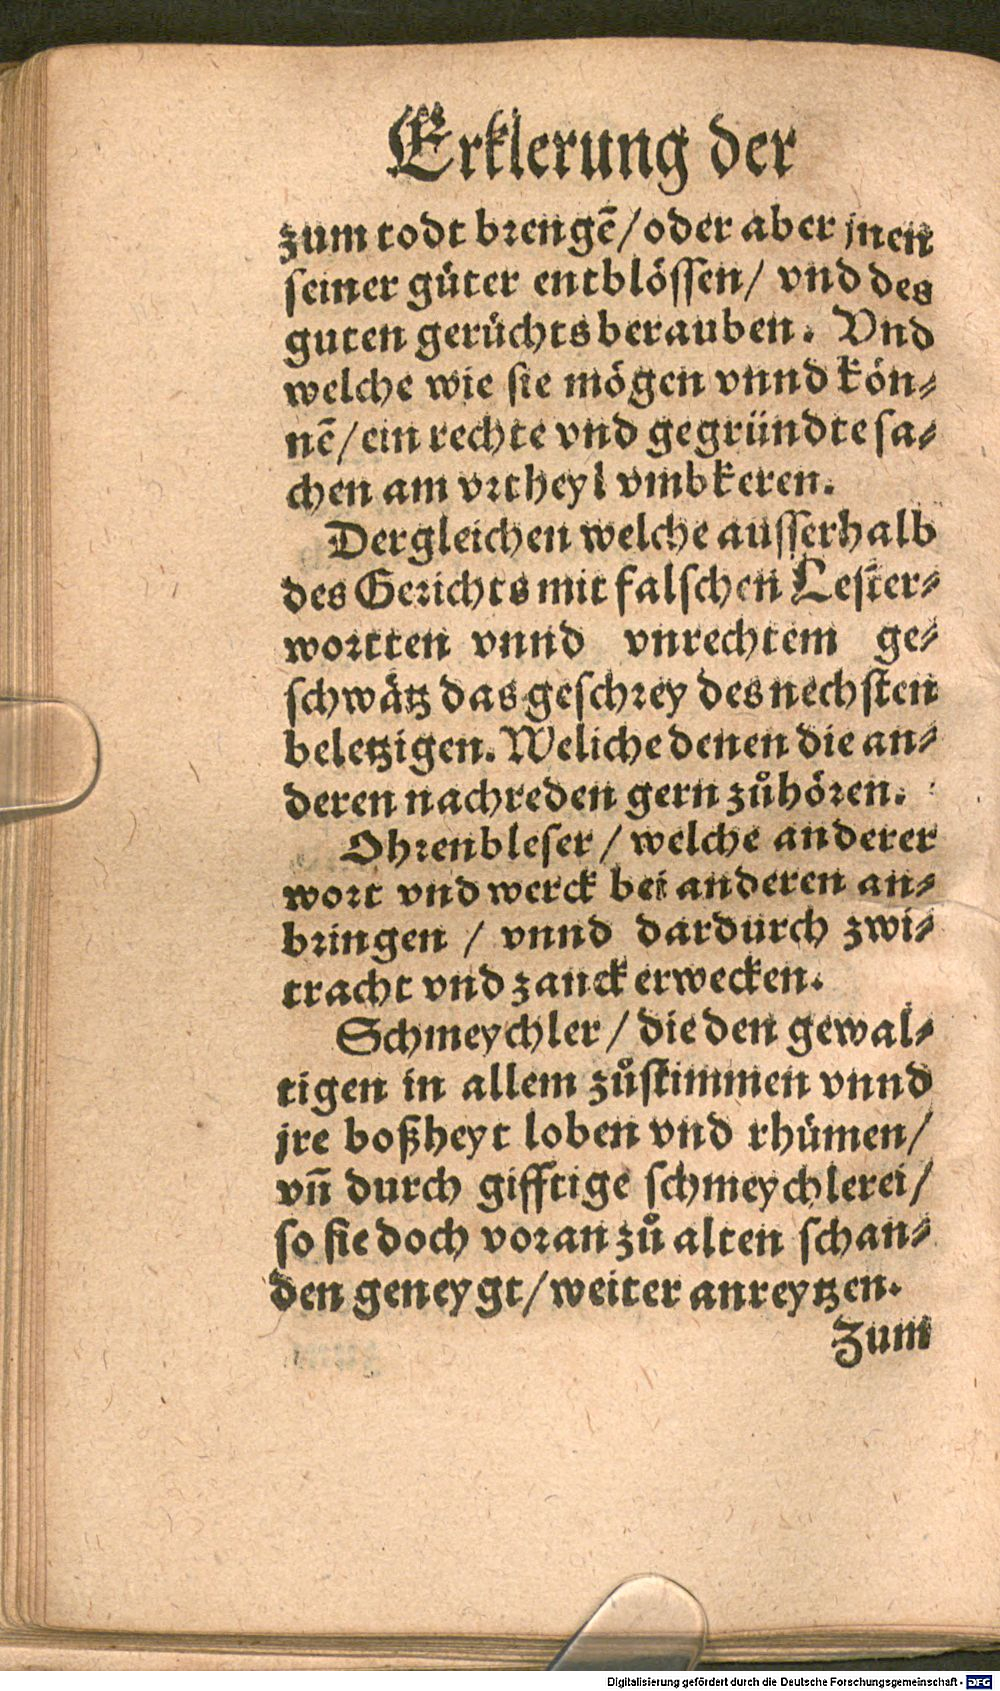 Erklerung der
zum todt brengē/oder aber jnen
seiner güter entblössen/ vnd des
guten gerüchts berauben. Vnd
welche wie sie mögen vnnd kön⸗
nē/ein rechte vnd gegründte sa⸗
chen am vrtheyl vmbkeren.
Dergleichen welche ausserhalb
des Gerichts mit falschen Lester⸗
wortten vnnd vnrechtem ge⸗
schwätz das geschrey des nechsten
beletzigen. Weliche denen die an⸗
deren nachreden gern zůhören.
Ohrenbleser / welche anderer
wort vnd werck bei anderen an⸗
bringen / vnnd dardurch zwi⸗
tracht vnd zanck erwecken.
Schmeychler / die den gewal⸗
tigen in allem zůstimmen vnnd
jre boßheyt loben vnd rhümen/
vñ durch gifftige schmeychlerei/
so sie doch voran zů alten schan⸗
den geneygt/weiter anreytzen.
Zum
Digitalisierung gefördert durch die Deutsche Forschungsgemeinschaft - DFG